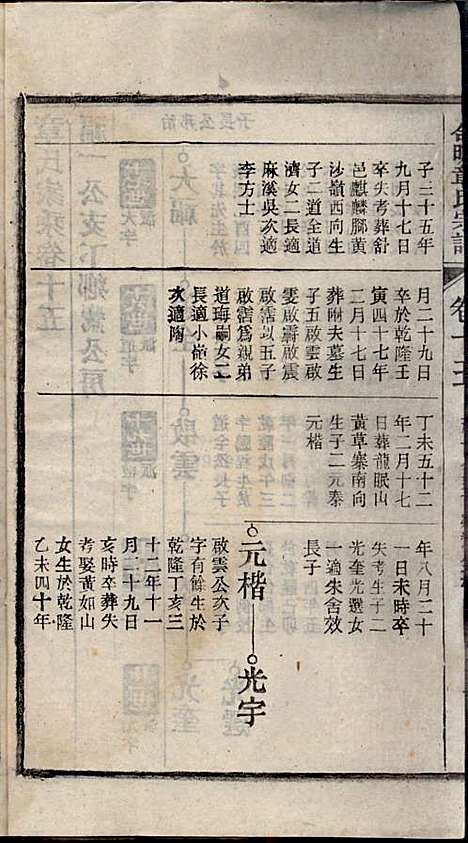 子二十五年
九月十七日
卒失考葬舒
邑麒麟腳黃
沙嶺西向生
子二道全道
濟女二長適
麻溪吳次適
李方士
月二十九日
卒於乾隆壬
寅四十七年
二月十七日
葬祔夫墓生
子五啟雲啟
雯啟霨啟震
啟霑以五子
啟霑為親弟
道瑋嗣女二
長適小嶺徐
次適陶
丁未五十二
年二月十七
日葬龍眠山
黃草寨南向
生子二元泰
元楷
年八月二十
一日未時卒
失考生子二
光奎光選女
一適朱舍效
長子
元楷
啟雲公次子
字有餘生於
乾隆丁亥三
十二年十一
月二十九日
亥時卒葬失
考娶黃如山
女生於乾隆
乙未四十年
光宇